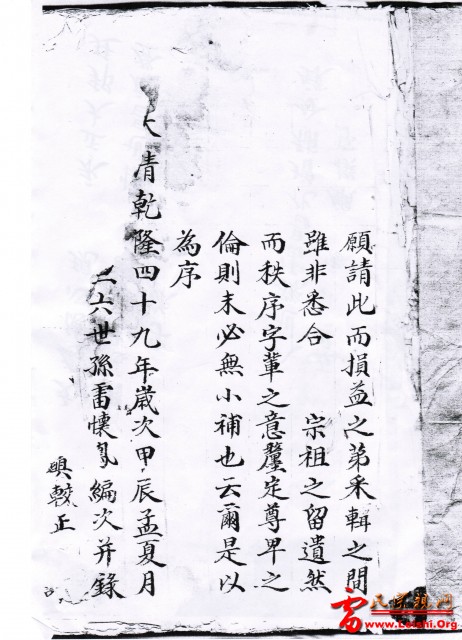 願請此而損益之苐采輯之間
雖非悉合 宗祖之留遺然
而秩序字輩之意釐定尊卑之
倫則未必無小補也云爾是以
為序
大清乾隆四十九年歲次甲辰孟夏月
六世孫雷懷編次并錄
較正
www.Leishi.Org